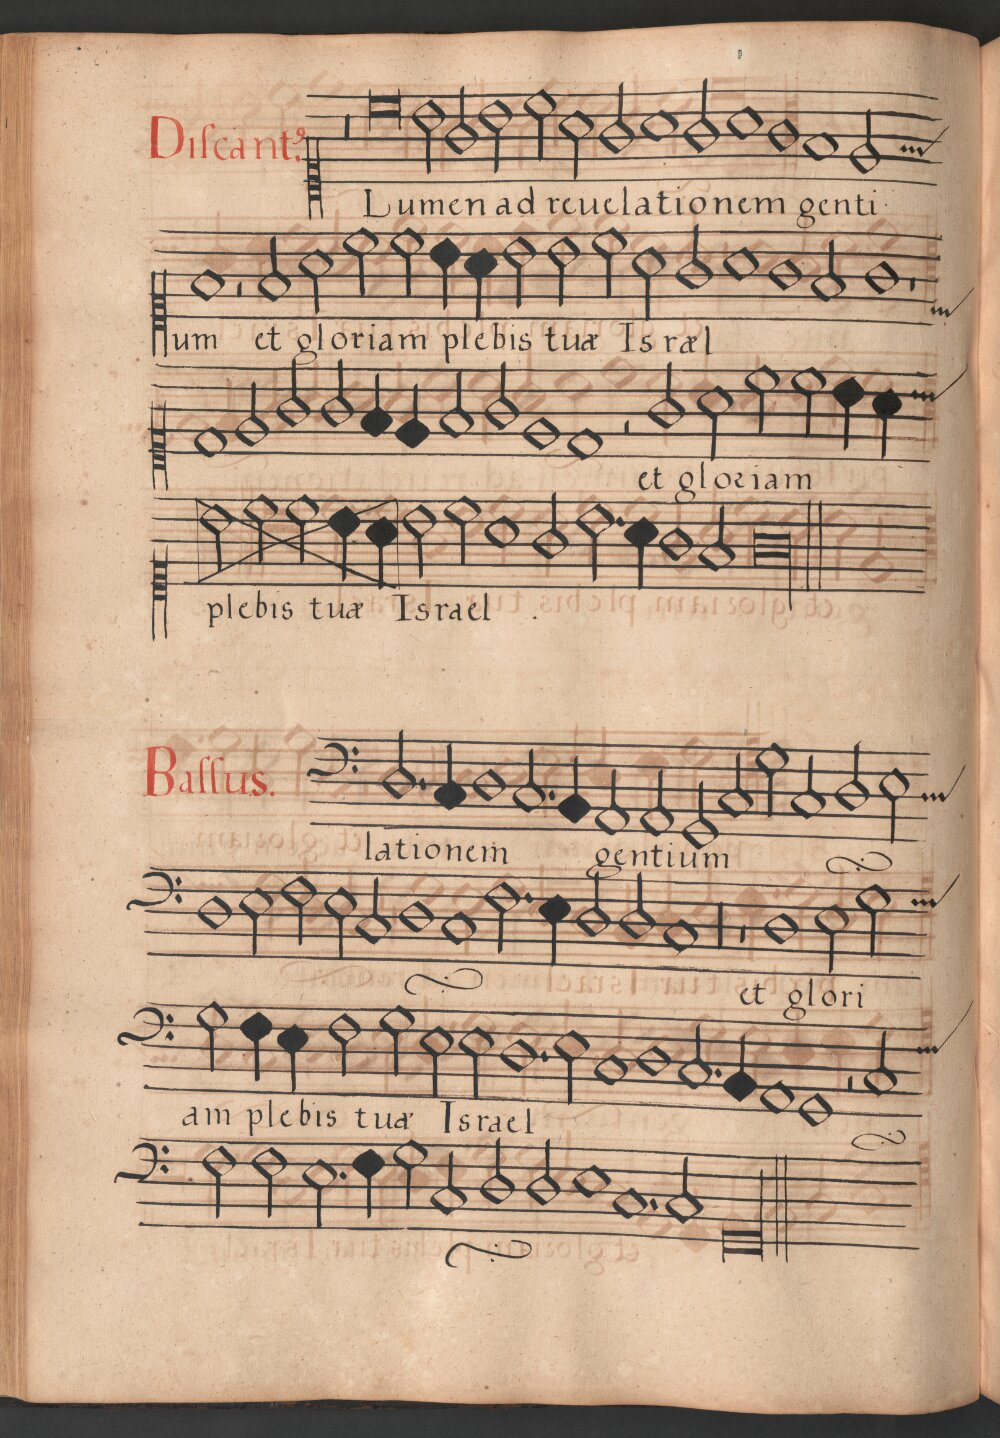 Diſcant⁹.
Lumen ad reuelationem genti
um et gloriam plebis tuæ Isræl
et gloriam
plebis tuæ Israel .
Baſſus.
lationem gentium
et glori
am plebis tuæ Israel